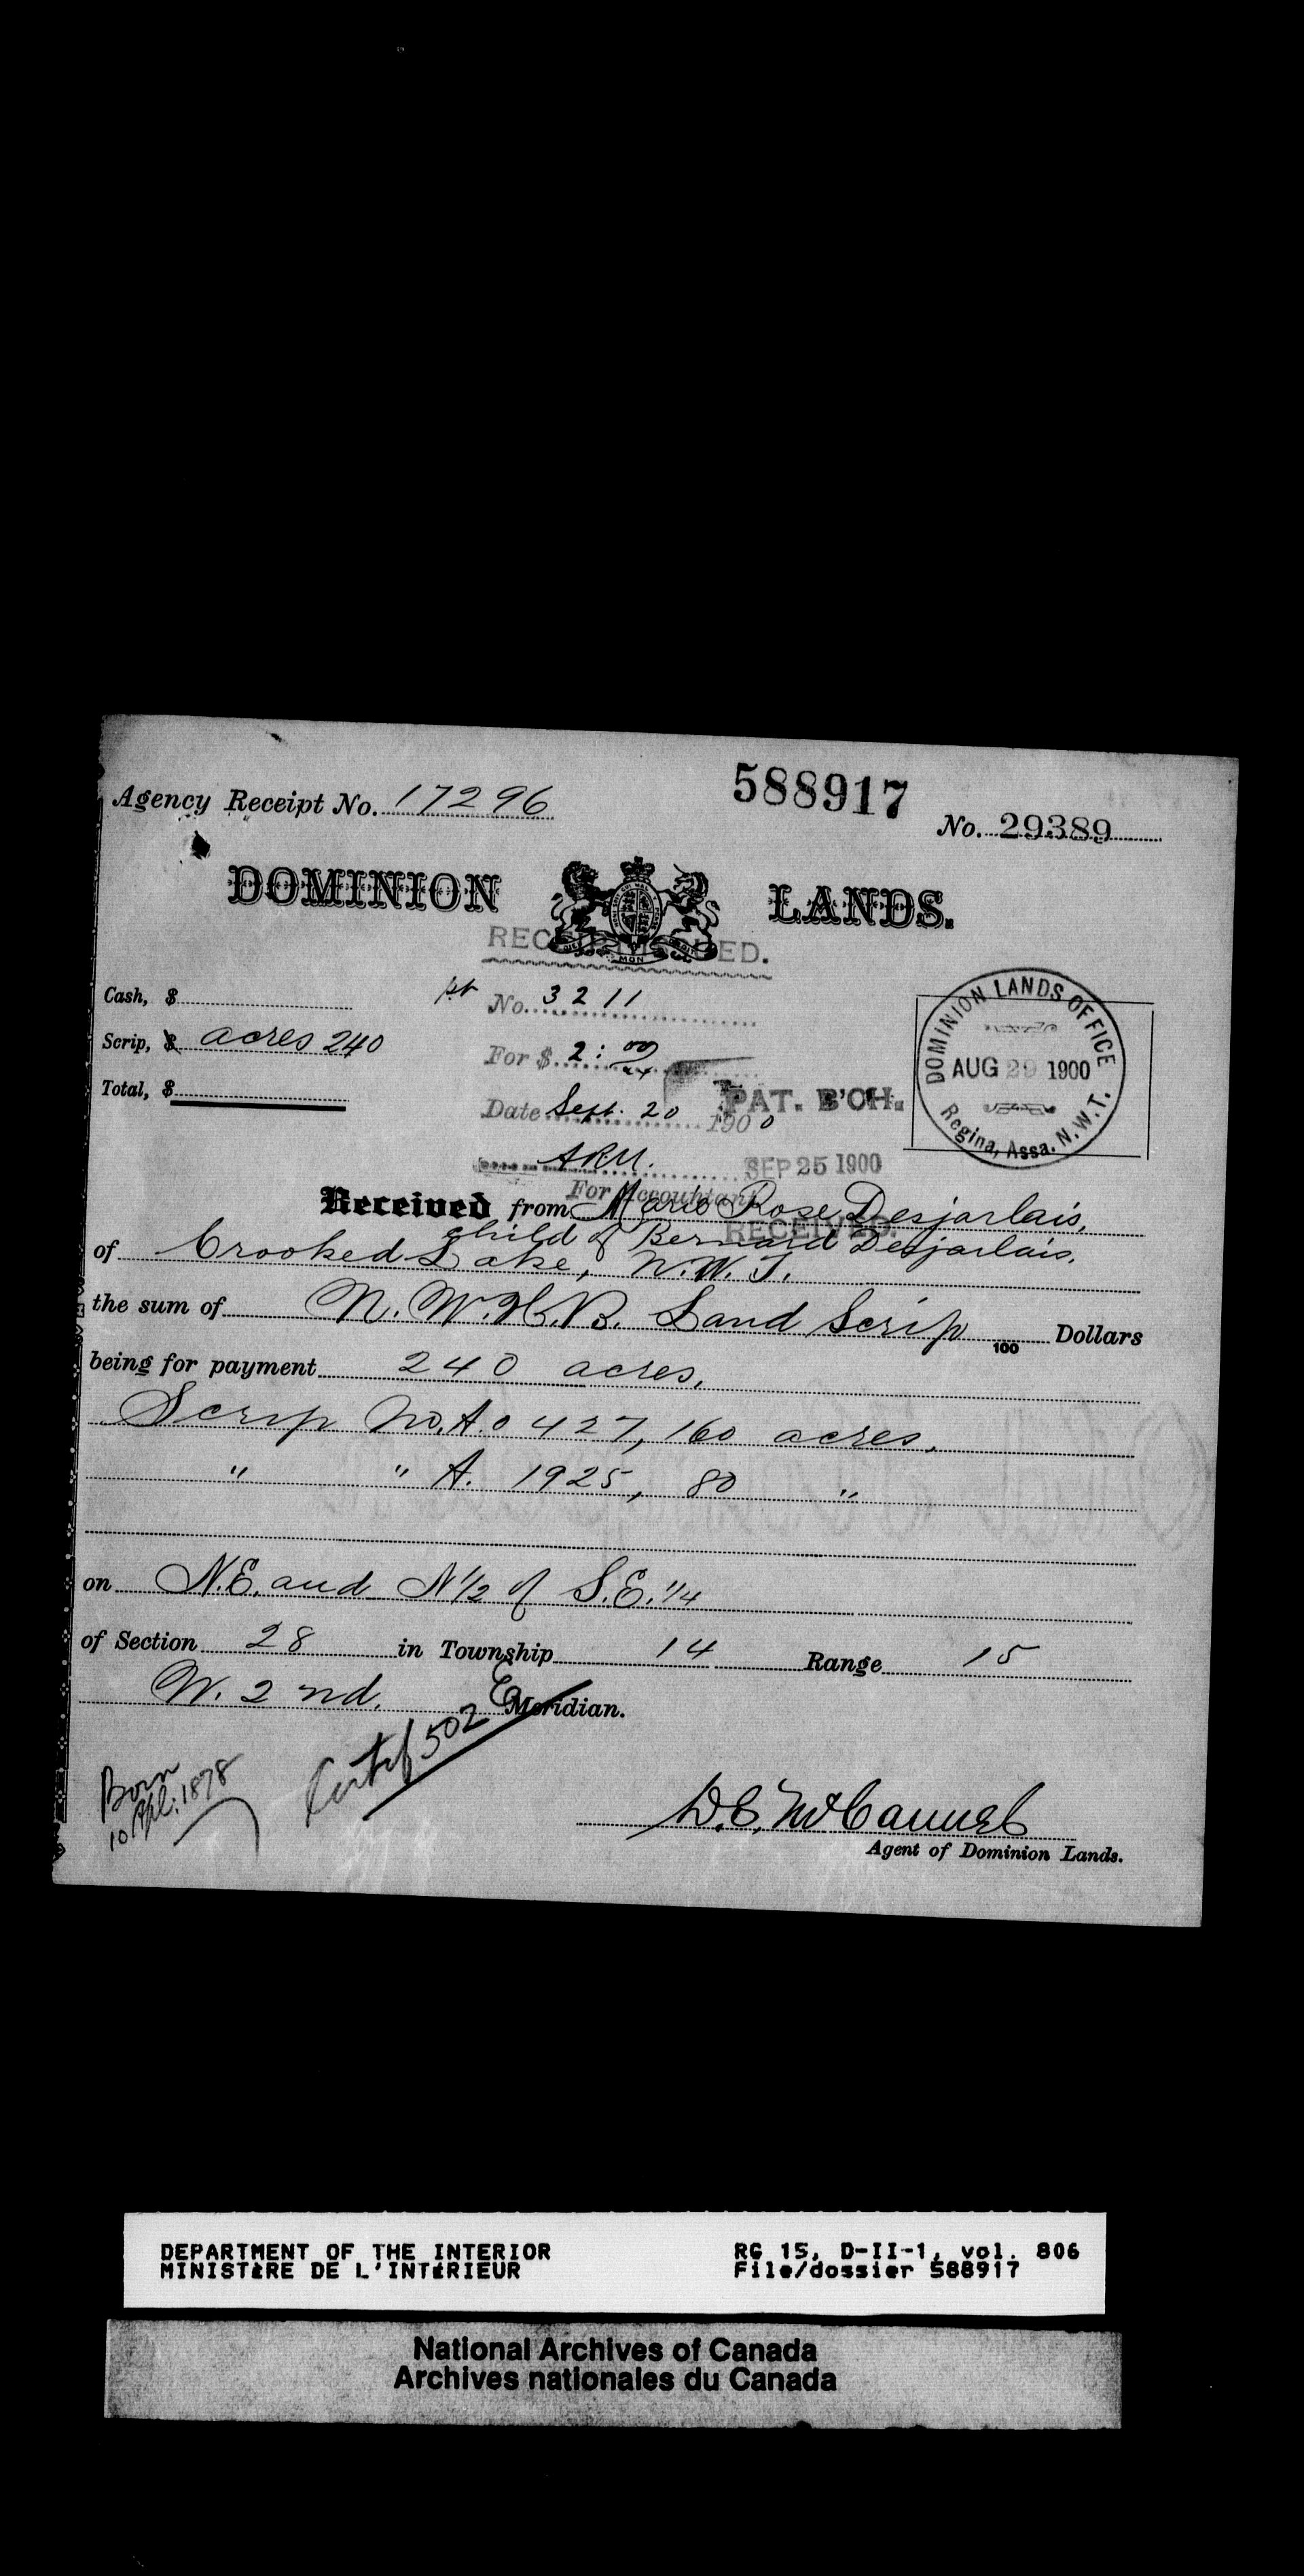 Agency Receipt No. 17296
588917
No. 29389
DOMINION LANDS.
DIEU ET MON DROIT
Cash, $
Scrip, $ acres 240
Total, $
pt No. 3211
For $ 2:00
Date Sept. 20 1900
A.R.M.
For Accountant
DOMINION LANDS OFFICE
AUG 29 1900
Regina, Assa. N.W.T.
PAT. B'CH.
SEP 25 1900
RECEIVED.
Received from Marie Rose Desjarlais,
child of Bernard Desjarlais.
of Crooked Lake, N.W.T.
the sum of N.W.H.B. Land Scrip 100 Dollars
being for payment 240 acres,
Scrip No. A. 0427, 160 acres.
" " A. 1925, 80 "
on N.E. and N 1/2 of S.E. 1/4
of Section 28 in Township 14 Range 15
W. 2nd. Meridian.
Born
10 Apl: 1878
Certif 502 E
D.C. McCannel
Agent of Dominion Lands.
DEPARTMENT OF THE INTERIOR
MINISTÈRE DE L'INTÉRIEUR
RG 15, D-II-1, vol. 806
File/dossier 588917
National Archives of Canada
Archives nationales du Canada